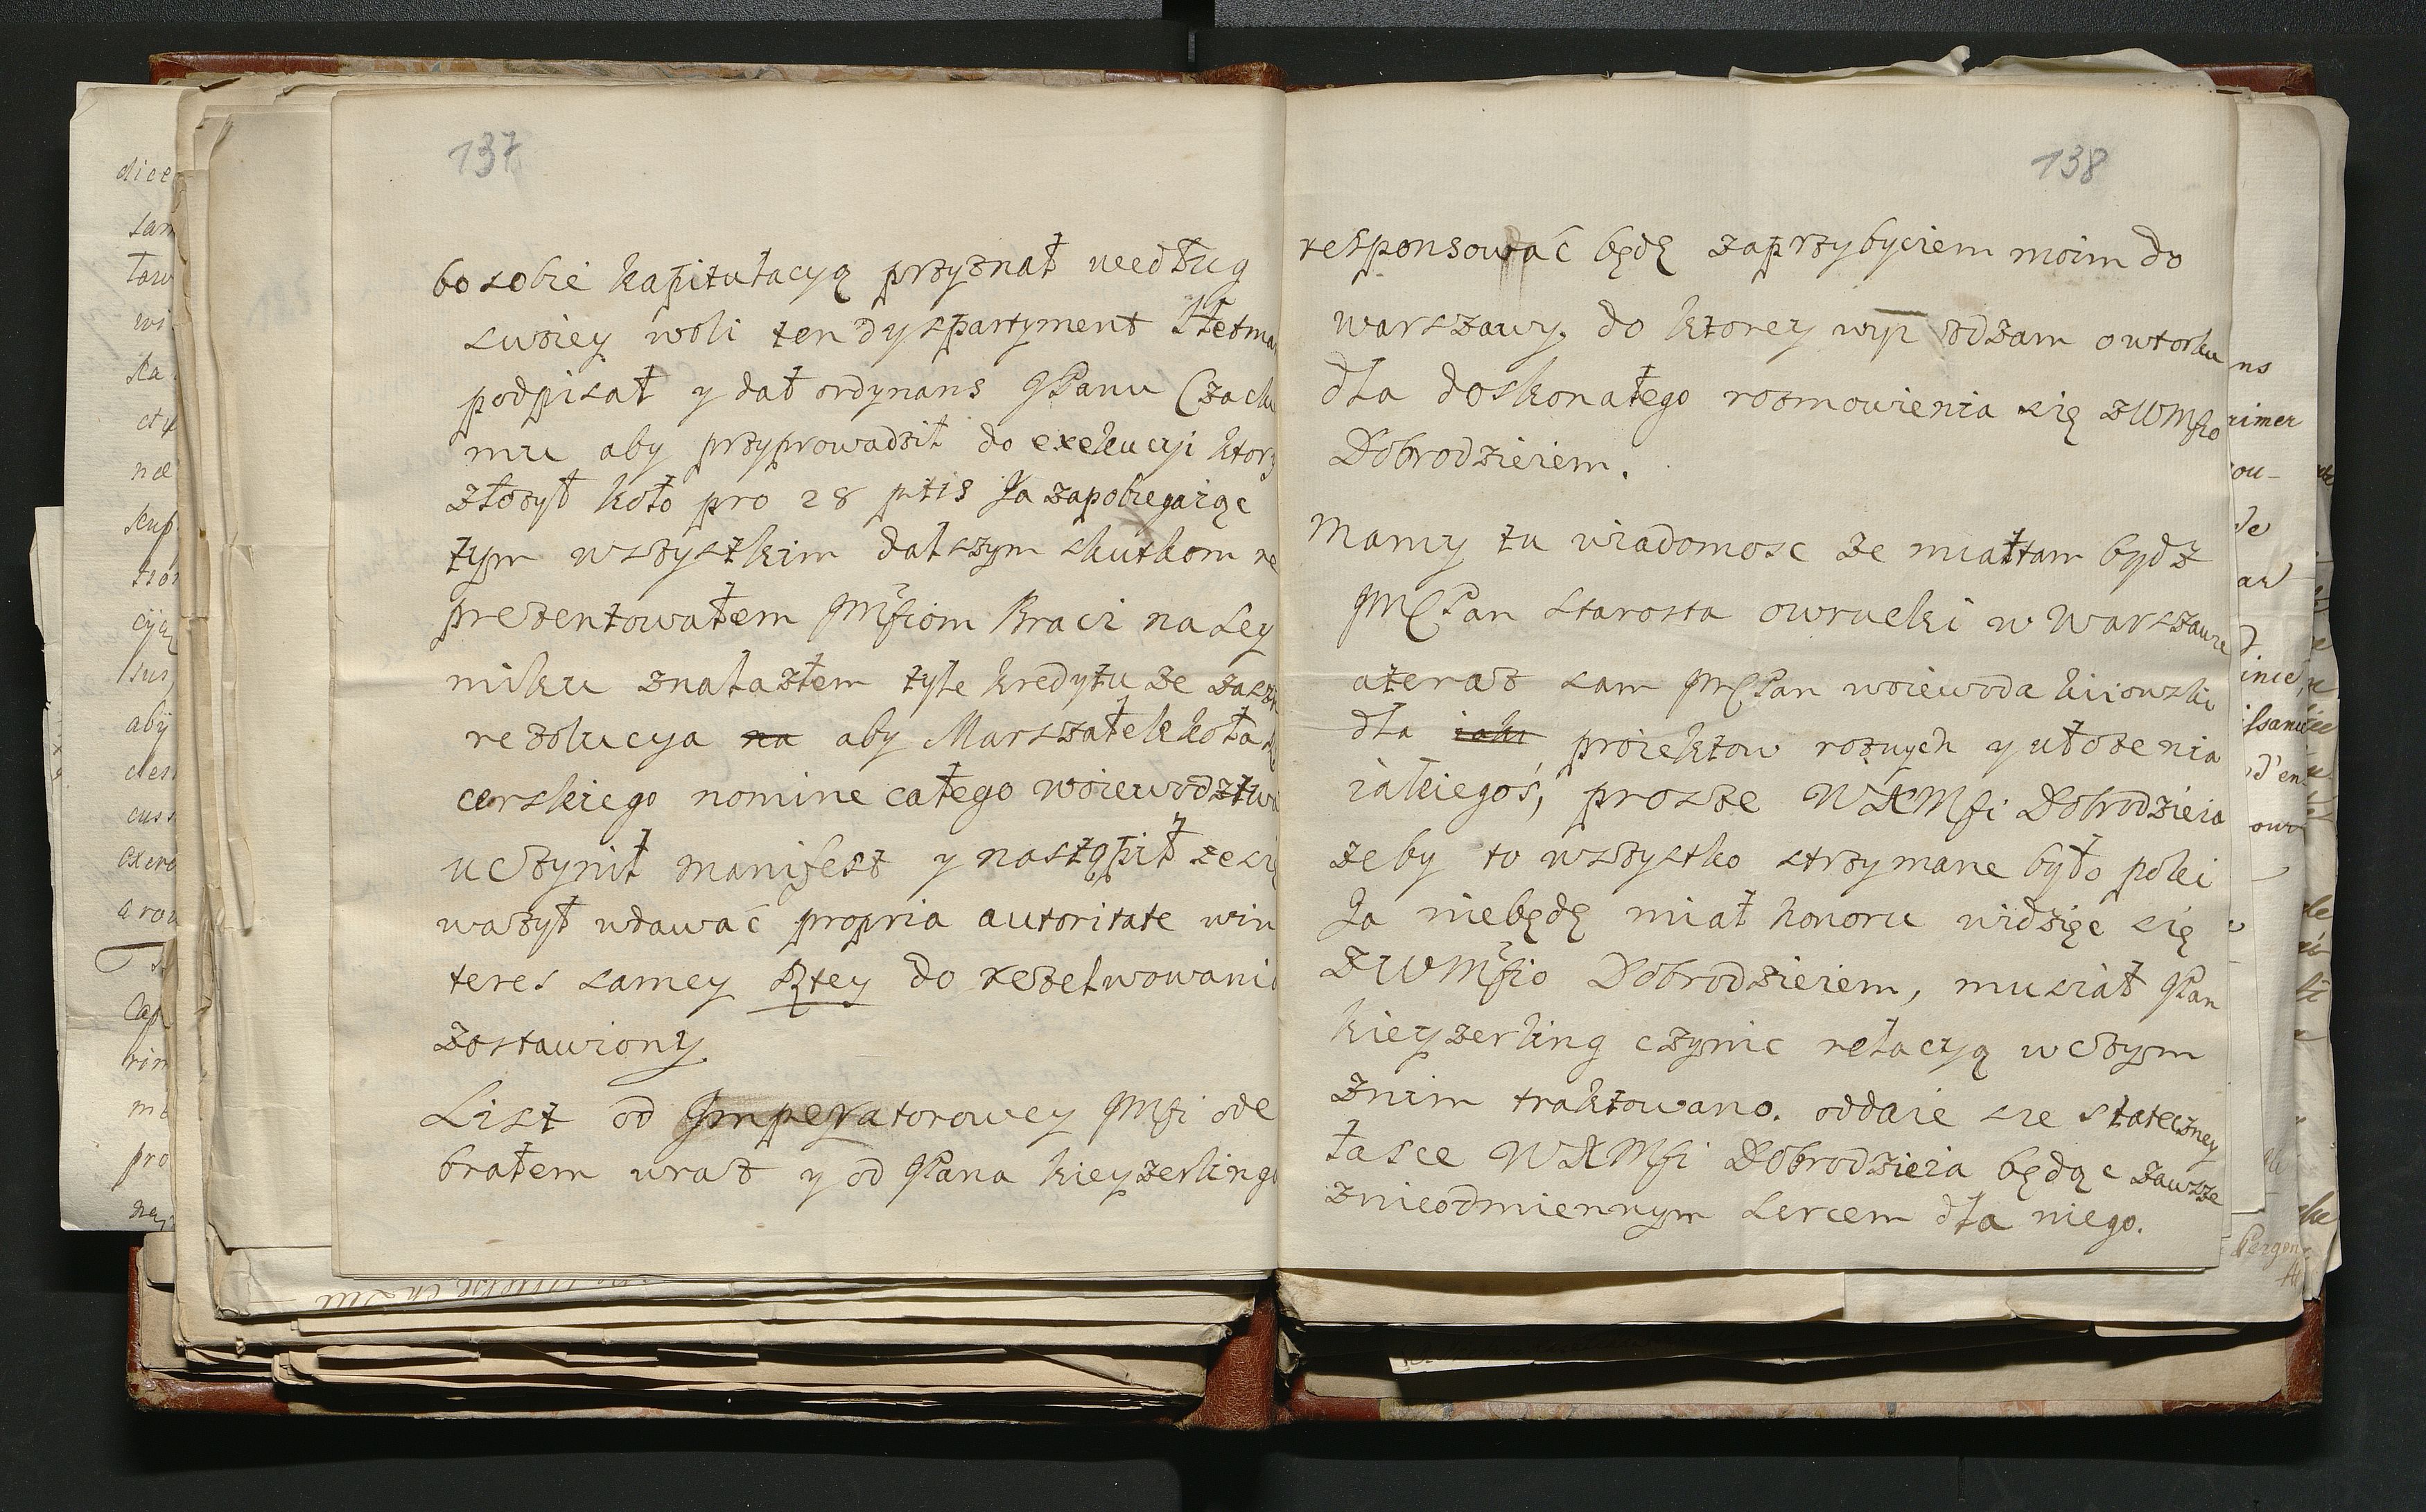 137
bo sobie kapitulacyą przyznał według
swoiey woli ten dyspartyment Hetma
podpisał y dał ordynans JPanu Czack
mu aby przyprowadził do exekucyi ktory
złożył koło pro 28 ptis Ja zapobiegaiąc
tym wszystkim dalszym skutkom re
prezentowałem JMściom Braci na Sey
miku znalazłem tyle kredytu że zasz
rezolucya na aby Marszałek koła
cerskiego nomine całego woiewodztwa
uczynił manifest y nastąpił że się
ważył wdawać propria autoritate w in
teres samey Rztey do rezelwowania
zostawiony
List od Jmperatorowey JMści ode
brałem wraz y od JPana kieyzerlinga
138
responsować będę za przybyciem moim do
warszawy, do ktorey wyi zdzam o wtorku
dla doskonałego rozmowienia się z WMścio
Dobrodzieiem.
Mamy tu wiadomosc że miał tam bydz
JMć Pan starosta owrucki w Warszawie
a teraz sam JMć Pan woiewoda kiiowski
dla iaki proiektow rożnych y ułożenia
iakiegoś, prosze WXMści Dobrodzieia
żeby to wszystko strzymane było poki
Ja niebędę miał honoru widzięc się
z WMścio Dobrodzieiem, musiał JPan
kieyzerling czynic relacyą w czym
znim traktowano. oddaie sie stateczney
łasce WXMści Dobrodzieia będąc zawsze
znieodmiennym sercem dla niego.